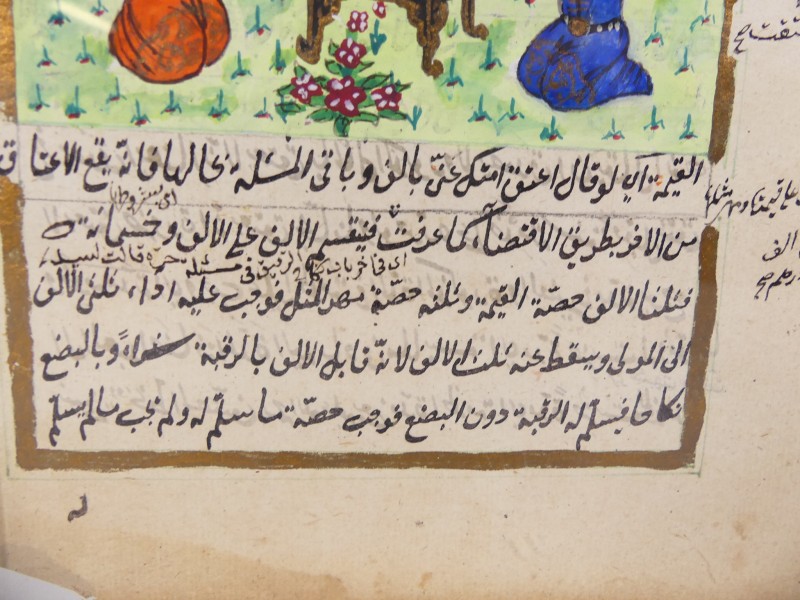 القيمة اى لو قال اعتق امتك عنى بالف وباقى المسئلة بحالها فانه يقع الاعتاق
من الآمر بطريق الاقتضاء كما عرفت فينقسم الالف على الالف وخمسمائة
اى فى آخر باب نكاح الرقيق فى مسئلة حرة قالت لسيد
فثلثا الالف حصة القيمة وثلثه حصة مهر المثل فوجب عليه اداء ثلثى الالف
الى المولى ويسقط عنه ثلث الالف لانه قابل الالف بالرقبة شراء وبالبضع
نكاحا فيسلم له الرقبة دون البضع فوجب حصة ما سلم له ولم يجب ما لم يسلم
له